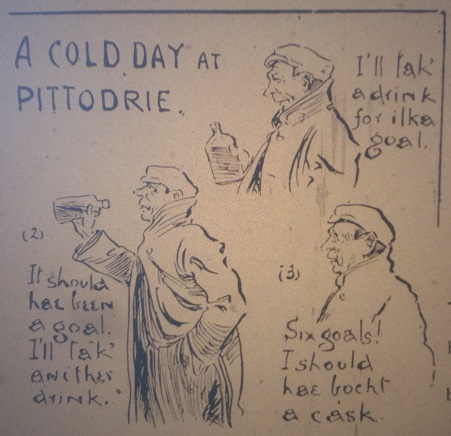 A COLD DAY AT
PITTODRIE.
I'll tak'
a drink
for ilka
goal.
(2)
It should
hae been
a goal.
I'll tak'
anither
drink.
(3)
Six goals!
I should
hae bocht
a cask.